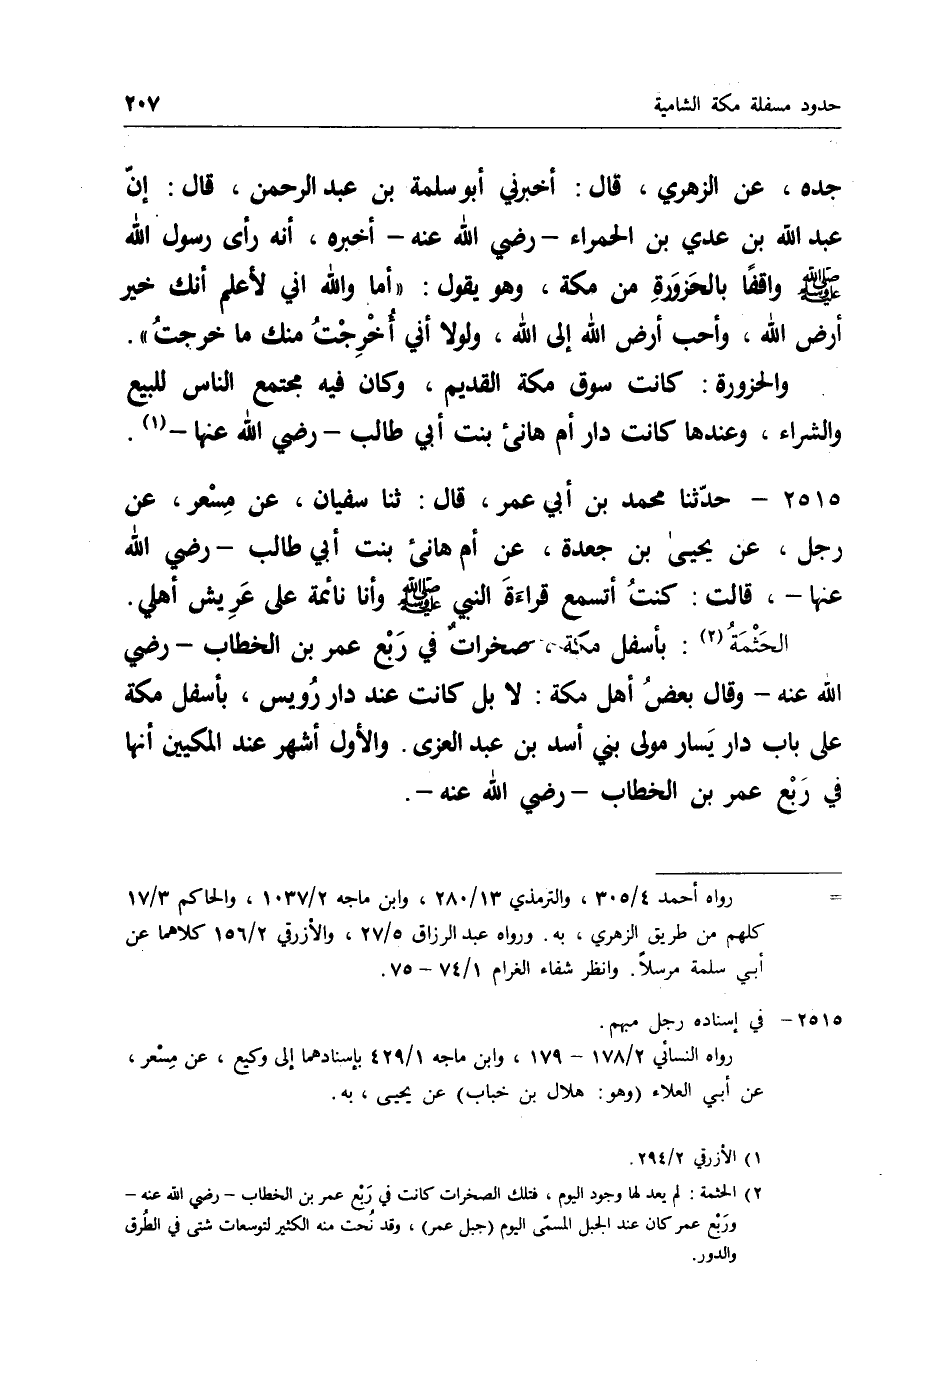 حدود مسفلة مكة الشامية ٢٠٧
جده ، عن الزهري ، قال : أخبرني أبو سلمة بن عبد الرحمن ، قال : إنّ
عبد الله بن عدي بن الحمراء – رضي الله عنه – أخبره ، أنه رأى رسول الله
ﷺ واقفًا بالحَزوَرَةِ من مكة ، وهو يقول : «أما والله اني لأعلم أنك خير
أرض الله ، وأحب أرض الله إلى الله ، ولولا أني أُخْرِجْتُ منك ما خرجتُ» .
والحزورة : كانت سوق مكة القديم ، وكان فيه مجتمع الناس للبيع
والشراء ، وعندها كانت دار أم هانئ بنت أبي طالب – رضي الله عنها –(١) .
٢٥١٥ – حدّثنا محمد بن أبي عمر ، قال : ثنا سفيان ، عن مِسْعر ، عن
رجل ، عن يحيىٰ بن جعدة ، عن أم هانئ بنت أبي طالب – رضي الله
عنها – ، قالت : كنتُ أتسمع قراءةَ النبي ﷺ وأنا نائمة على عَرِيش أهلي .
الحَثْمَةُ(٢) : بأسفل مكة ، صخراتٌ في رَبْع عمر بن الخطاب – رضي
الله عنه – وقال بعضُ أهل مكة : لا بل كانت عند دار رُويس ، بأسفل مكة
على باب دار يَسار مولى بني أسد بن عبد العزى . والأول أشهر عند المكيين أنها
في رَبْع عمر بن الخطاب – رضي الله عنه – .
= رواه أحمد ٣٠٥/٤ ، والترمذي ٢٨٠/١٣ ، وابن ماجه ١٠٣٧/٢ ، والحاكم ١٧/٣
كلهم من طريق الزهري ، به . ورواه عبد الرزاق ٢٧/٥ ، والأزرقي ١٥٦/٢ كلاهما عن
أبي سلمة مرسلاً . وانظر شفاء الغرام ٧٤/١ – ٧٥ .
٢٥١٥ – في إسناده رجل مبهم .
رواه النسائي ١٧٨/٢ – ١٧٩ ، وابن ماجه ٤٢٩/١ بإسنادهما إلى وكيع ، عن مِسْعر ،
عن أبي العلاء (وهو : هلال بن خباب) عن يحيى ، به .
١) الأزرقي ٢٩٤/٢ .
٢) الحثمة : لم يعد لها وجود اليوم ، فتلك الصخرات كانت في رَبْع عمر بن الخطاب – رضي الله عنه –
ورَبْع عمر كان عند الجبل المسمّى اليوم (جبل عمر) ، وقد نُحت منه الكثير لتوسعات شتى في الطُرق
والدور .